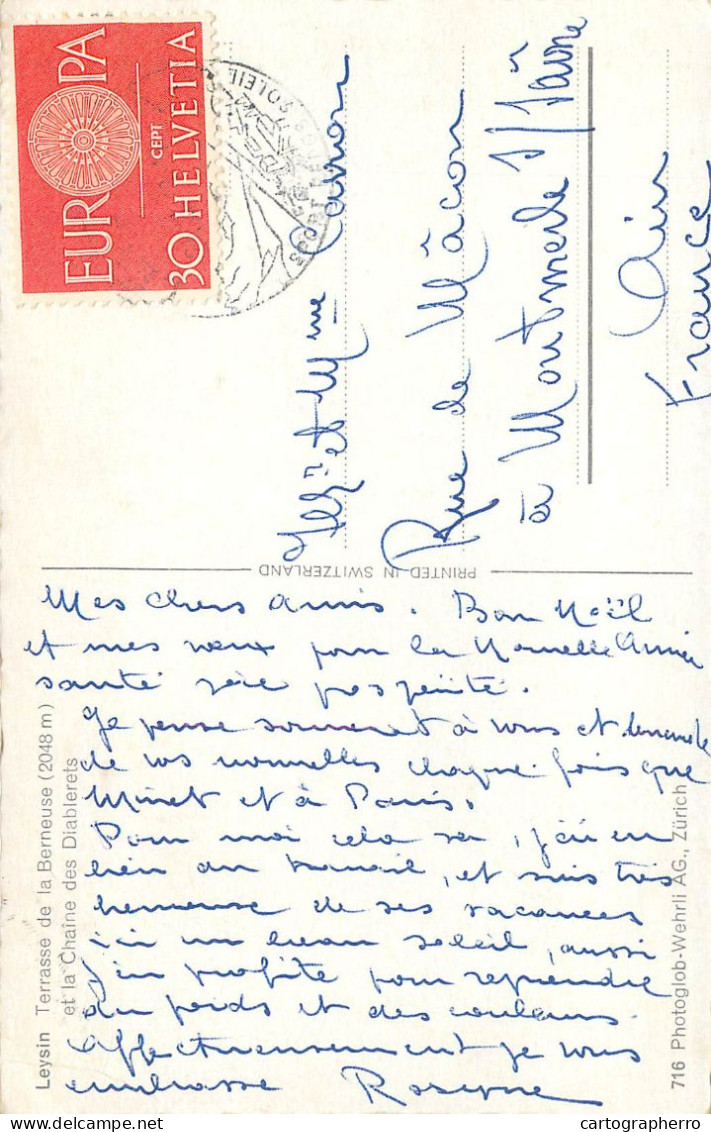 EUROPA
CEPT
30 HELVETIA
SPORT
SOLEIL
et Mme
Rue de Mâcon
à Montmerle s/ Saône
Ain
France
PRINTED IN SWITZERLAND
Mes chers amis. Bon Noël
et mes vœux pour la Nouvelle Année
santé joie prospérité.
Je pense souvent à vous et demande
de vos nouvelles chaque fois que
Minet et à Paris.
Pour moi cela va, j'ai eu
bien du travail, et suis très
heureuse de ses vacances
ici un beau soleil, aussi
j'en profite pour reprendre
du poids et des couleurs.
Affectueusement je vous
embrasse Roseyne
Leysin Terrasse de la Berneuse (2048 m)
et la Chaîne des Diablerets
716 Photoglob-Wehrli AG., Zürich
cartographerro